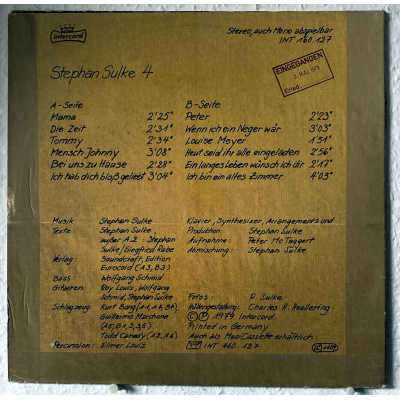 intercord
Stereo, auch Mono abspielbar
INT 160.127
Stephan Sulke 4
EINGEGANGEN
2. MAI 1979
Erled.
A-Seite
Mama 2'25"
Die Zeit 2'31"
Tommy 2'34"
Mensch Johnny 3'08"
Bei uns zu Hause 2'28"
Ich hab dich bloß geliebt 3'04"
B-Seite
Peter 2'23"
Wenn ich ein Neger wär 3'03"
Louise Meyer 1'51"
Heut seid ihr alle eingeladen 2'56"
Ein langes Leben wünsch ich dir 2'17"
Ich bin ein altes Zimmer 4'03"
Musik: Stephan Sulke
Texte: Stephan Sulke
außer A2: Stephan
Sulke/Siegfried Rabe
Verlag: Soundcraft, Edition
Eurocord (A3, B3)
Bass: Wolfgang Schmid
Gitarren: Roy Louis, Wolfgang
Schmid, Stephan Sulke
Schlagzeug: Kurt Bong
Guillermo Marchena
(A5, B1, 2, 3, 5)
Todd Canedy (A2, A6)
Percussion: Elmer Louis
Klavier, Synthesizer, Arrangements und
Produktion: Stephan Sulke
Aufnahme: Peter Mc Taggert
Abmischung: Stephan Sulke
Fotos R. Sulke
Hüllengestaltung: Charles H. Hoellering
© Ⓟ 1979 Intercord
Printed in Germany
Auch als MusiCassette erhältlich:
INT 460.127